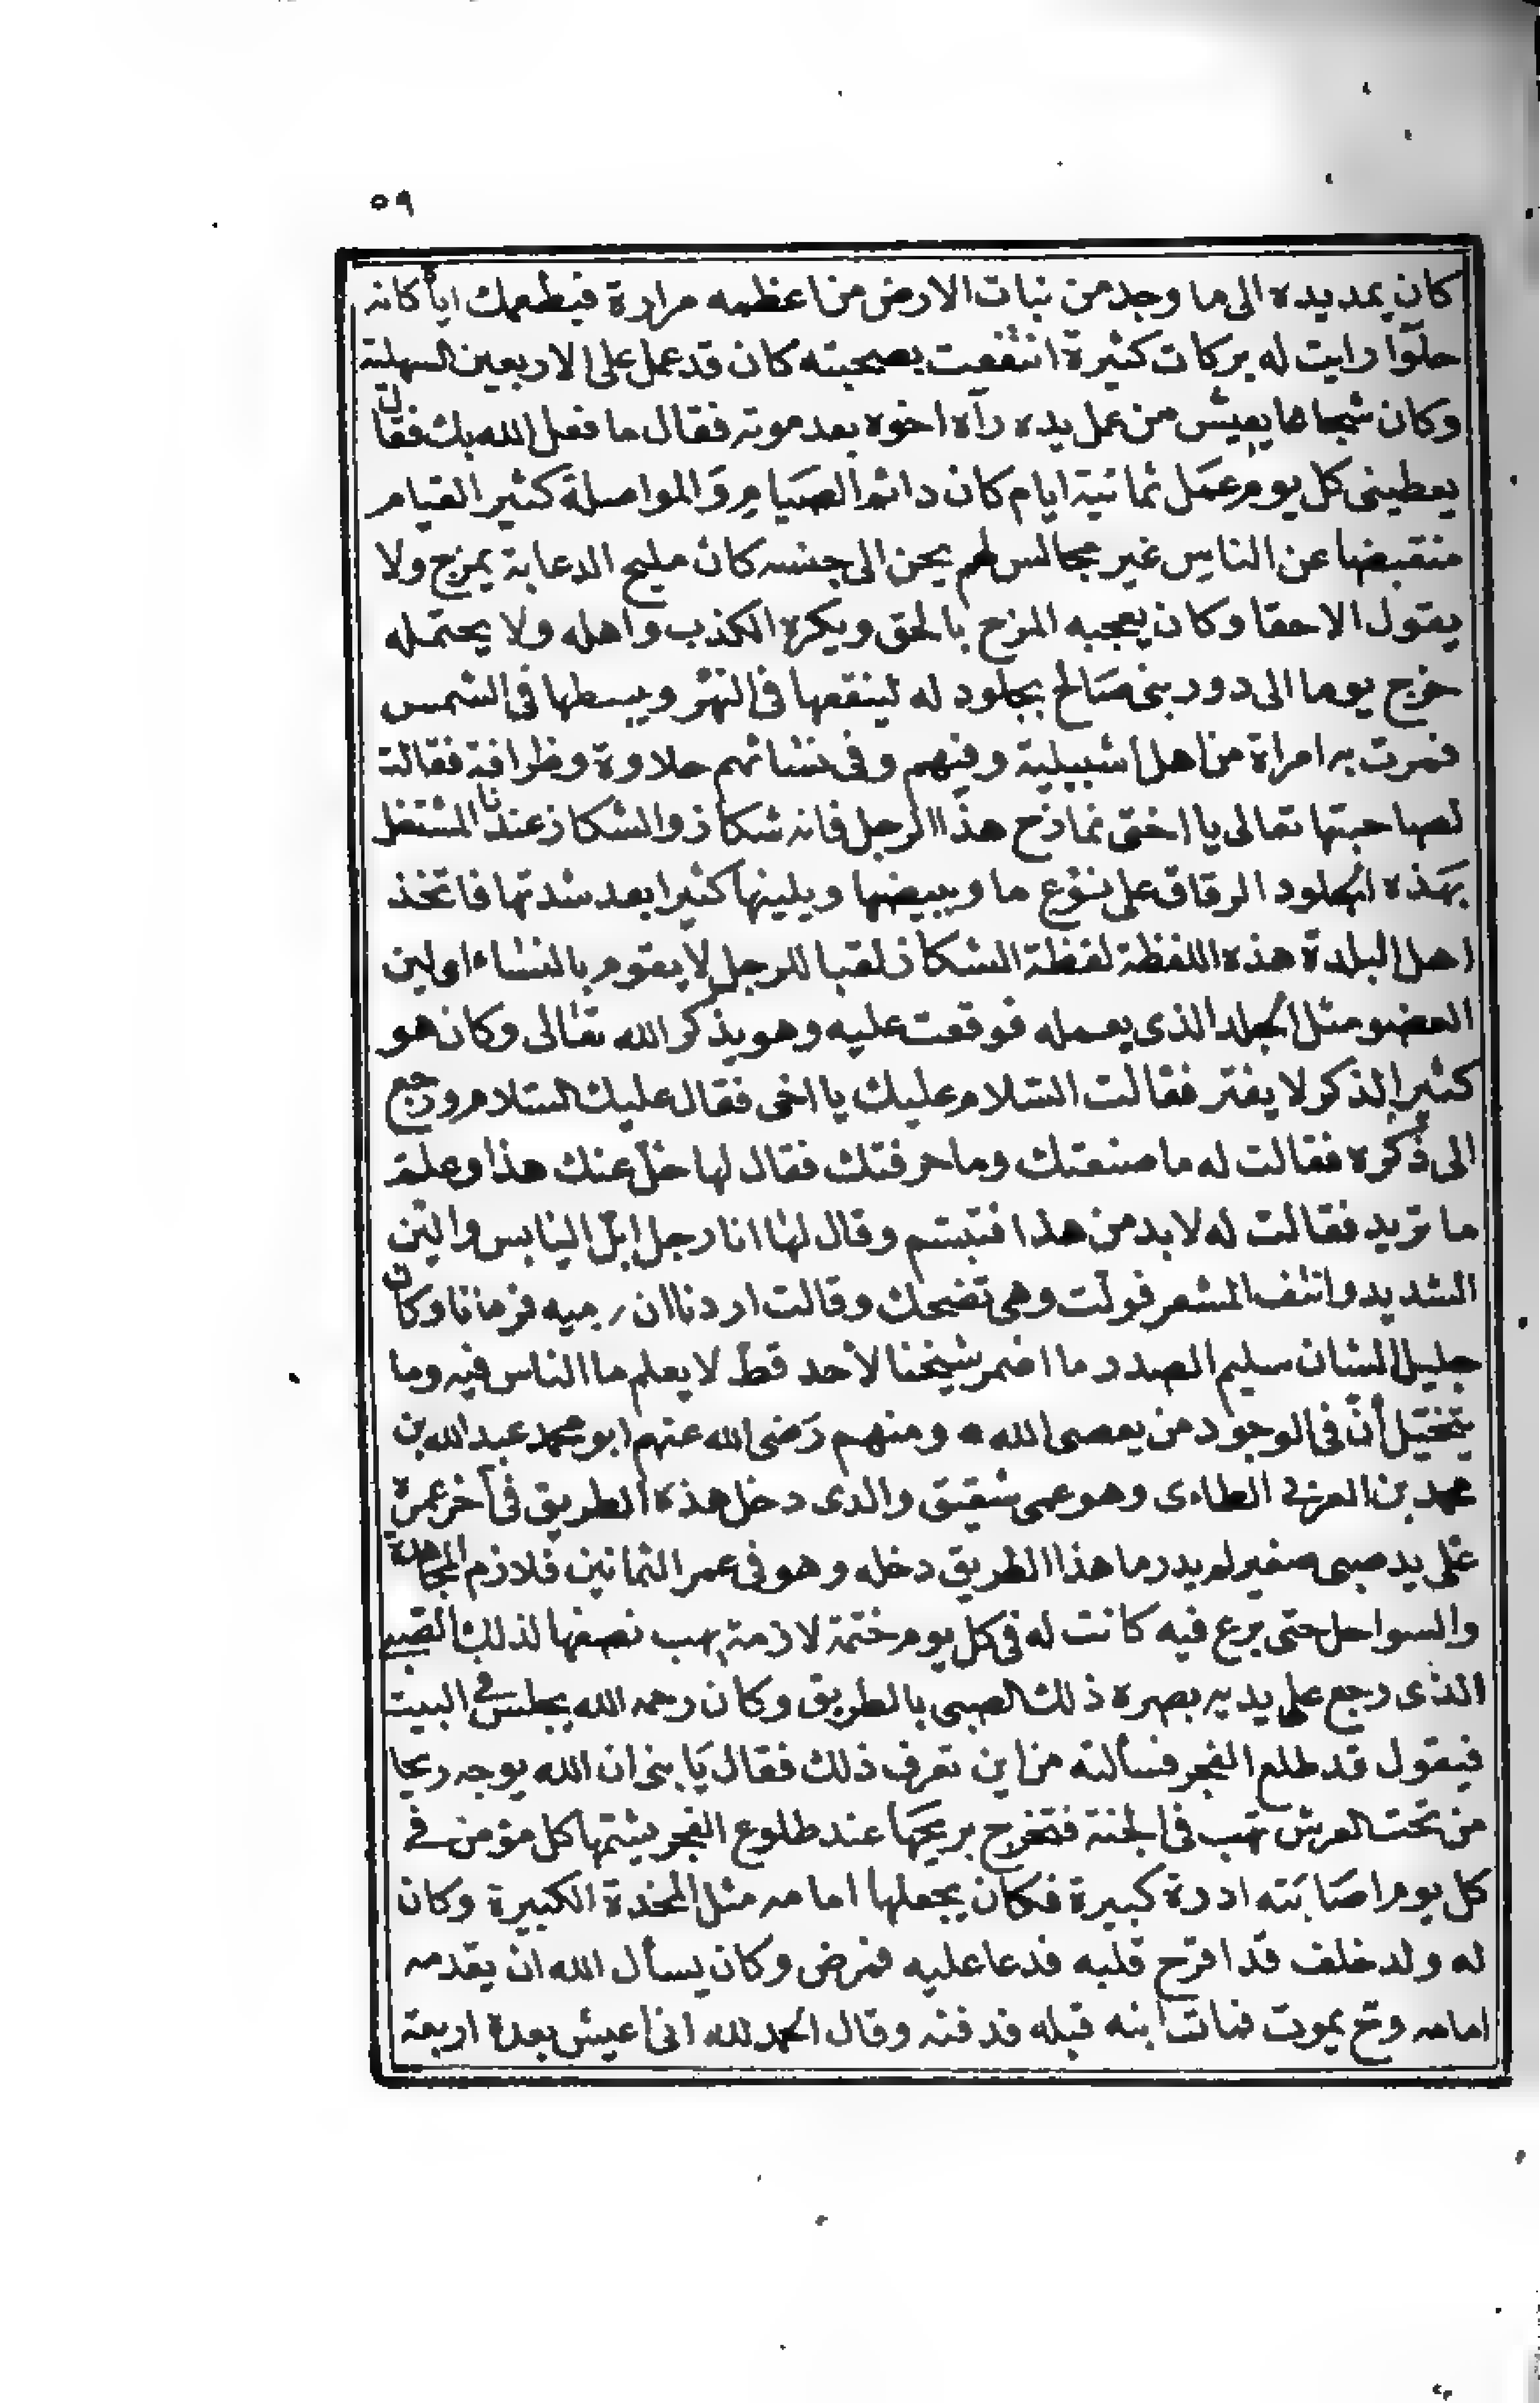 ٥٩
كان يمد يده الى ما وجد من نبات الارض من اعظمه مرارة فيطعمك اياه كانه
حلوا رايت له بركات كثيرة انتفعت بصحبته كان قد عمل على الاربعين السهلية
وكان شجاعا يعيش من عمل يده رآه اخوه بعد موته فقال ما فعل الله بك فقال
يعطيني كل يوم عمل ثمانية ايام كان دائم الصيام والمواصلة كثير القيام
منقبضا عن الناس غير مجالس لم يحن الى جنسه كان مليح الدعابة يمزح ولا
يقول الا حقا وكان يعجبه المزح بالحق ويكره الكذب واهله ولا يحتمله
خرج يوما الى دور بنى صالح بجلود له لينقعها فى النهر ويبسطها فى الشمس
فمرت به امراة من اهل اشبيلية وفيهم وفى نسائهم حلاوة وظرافة فقالت
لصاحبتها تعالى يا اختى نمازح هذا الرجل فانه شكاز والشكاز عندنا المشتغل
بهذه الجلود الرقاق على نوع ما ويبيضها ويلينها كثيرا بعد شدتها فاتخذ
اهل البلدة هذه اللفظة لفظة الشكاز لقبا للرجل لا يقوم بالنساء او لين
العضو مثل الجلد الذى يعمله فوقعت عليه وهو يذكر الله تعالى وكان هو
كثير الذكر لا يفتر فقالت السلام عليك يا اخى فقال عليك السلام ورجع
الى ذكره فقالت له ما صنعتك وما حرفتك فقال لها خل عنك هذا وعلم
ما تريد فقالت له لا بد من هذا فتبسم وقال لها انا رجل ابل اليابس والين
الشديد وانتف المشعر فولت وهى تضحك وقالت اردنا ان نرميه فرمانا وكان
جليل الشان سليم الصدر ما اضمر شيخنا لاحد قط لا يعلم ما الناس فيه وما
يتخيل أن فى الوجود من يعصى الله ه ومنهم رضى الله عنهم ابو محمد عبد الله بن
محمد بن العربى الطاءى وهو عمى شقيق والدى دخل هذه الطريق فى آخر عمره
على يد صبى صغير لم يدر ما هذا الطريق دخله وهو فى عمر الثمانين فلازم المجاهدة
والسواحل حتى برع فيه كانت له فى كل يوم ختمة لازمة يهب نصفها لذلك الصبى
الذى رجع على يديه بصره ذلك الصبى بالطريق وكان رحمه الله يجلس فى البيت
فيقول قد طلع الفجر فسألته من اين تعرف ذلك فقال يا بنى ان الله يوجه ريحا
من تحت العرش تهب فى الجنة فتخرج بريحها عند طلوع الفجر يشتمها كل مؤمن فى
كل يوم اصابته ادرة كبيرة فكان يجعلها امامه مثل المخدة الكبيرة وكان
له ولد خلف قد اقرح قلبه فدعا عليه فمرض وكان يسأل الله ان يقدمه
امامه وح يموت فمات ابنه قبله فدفنه وقال الحمد لله انى اعيش بعده اربعة